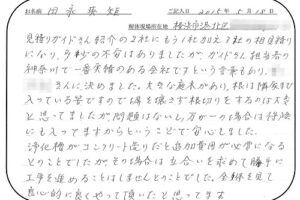 お名前 田永英矩 ご記入日 2015年5月18日
解体現場所在地 横浜市港北区
見積りガイドさん紹介の2社にもう1社加え3社の相見積り
になり、多少の不安はありましたが、ガイドさん担当者の
神奈川で一番実績のある会社ですという言葉もあり、
さんに決めました。大きな庭木があり、根は隣家まで
入っている筈ですので塀を壊さず根切りをするのは大変
と思ってましたが、問題はないし、万が一の場合は保険
にも入ってますからということで安心しました。
浄化槽がコンクリート造りだと追加費用が必要になる
とのことでしたがその場合は立合いを求めて勝手に
工事を進めることはしませんとのことでした。全体を見て
良心的に良くやって頂いたと思ってます